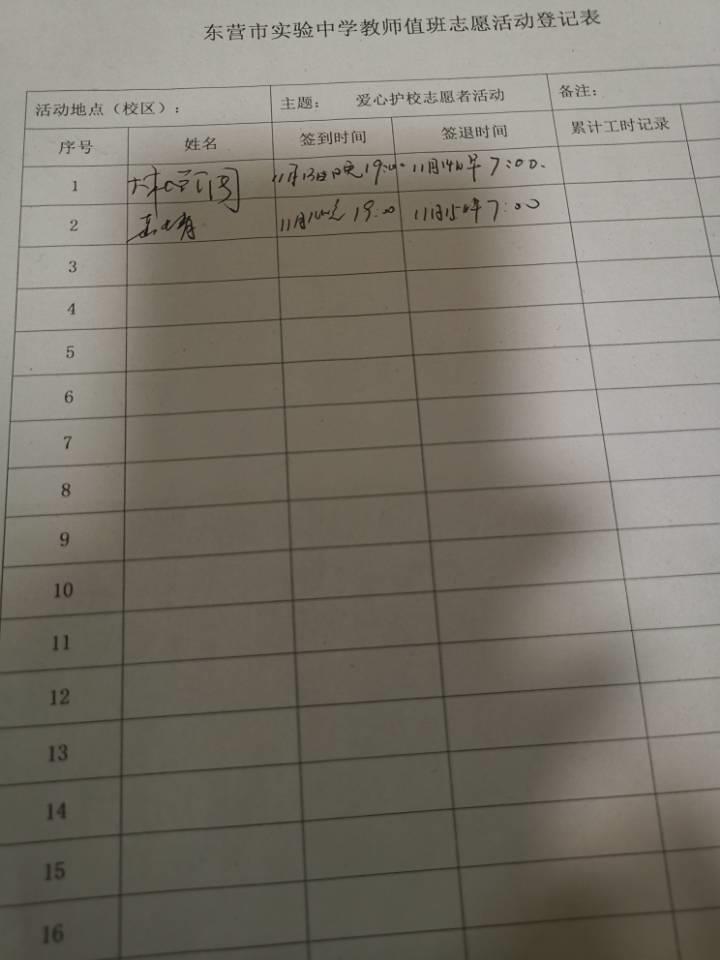 东营市实验中学教师值班志愿活动登记表
活动地点（校区）： 主题： 爱心护校志愿者活动 备注：
序号 姓名 签到时间 签退时间 累计工时记录
1 11月13日晚19:00 11月14日早7:00.
2 11月14日晚19:00 11月15日早7:00
3
4
5
6
7
8
9
10
11
12
13
14
15
16